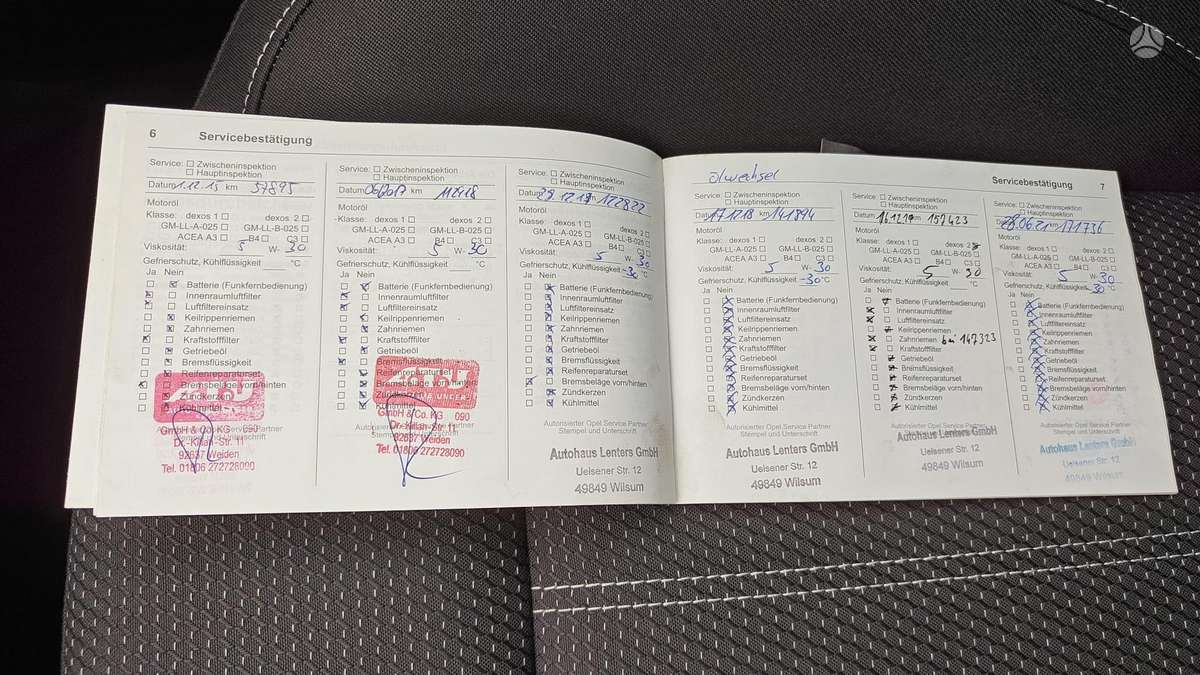 6 Servicebestätigung
Service: Zwischeninspektion
Hauptinspektion
Datum 1.12.15 km 57895
Motoröl
Klasse: dexos 1 dexos 2
GM-LL-A-025 GM-LL-B-025
ACEA A3 B4 C3
Viskosität: 5 W- 30
Gefrierschutz, Kühlflüssigkeit °C
Ja Nein
Batterie (Funkfernbedienung)
Innenraumluftfilter
Luftfiltereinsatz
Keilrippenriemen
Zahnriemen
Kraftstofffilter
Getriebeöl
Bremsflüssigkeit
Reifenreparaturset
Bremsbeläge vorn/hinten
Zündkerzen
Kühlmittel
GmbH & Co. KG 090
Dr.-Kilian-Str. 11
92637 Weiden
Tel. 01806 272728090
Service: Zwischeninspektion
Hauptinspektion
Datum km
Motoröl
Klasse: dexos 1 dexos 2
GM-LL-A-025 GM-LL-B-025
ACEA A3 B4 C3
Viskosität: 5 W- 30
Gefrierschutz, Kühlflüssigkeit °C
Ja Nein
Batterie (Funkfernbedienung)
Innenraumluftfilter
Luftfiltereinsatz
Keilrippenriemen
Zahnriemen
Kraftstofffilter
Getriebeöl
Bremsflüssigkeit
Reifenreparaturset
Bremsbeläge vorn/hinten
Zündkerzen
Kühlmittel
GmbH & Co. KG 090
Dr.-Kilian-Str. 11
92637 Weiden
Tel. 01806 272728090
Service: Zwischeninspektion
Hauptinspektion
Datum km 122822
Motoröl
Klasse: dexos 1 dexos 2
GM-LL-A-025 GM-LL-B-025
ACEA A3 B4 C3
Viskosität: 5 W- 30
Gefrierschutz, Kühlflüssigkeit -30 °C
Ja Nein
Batterie (Funkfernbedienung)
Innenraumluftfilter
Luftfiltereinsatz
Keilrippenriemen
Zahnriemen
Kraftstofffilter
Getriebeöl
Bremsflüssigkeit
Reifenreparaturset
Bremsbeläge vorn/hinten
Zündkerzen
Kühlmittel
Autorisierter Opel Service Partner
Stempel und Unterschrift
Autohaus Lenters GmbH
Uelsener Str. 12
49849 Wilsum
Servicebestätigung 7
Ölwechsel
Service: Zwischeninspektion
Hauptinspektion
Datum 17.12.18 km 141894
Motoröl
Klasse: dexos 1 dexos 2
GM-LL-A-025 GM-LL-B-025
ACEA A3 B4 C3
Viskosität: 5 W- 30
Gefrierschutz, Kühlflüssigkeit -30 °C
Ja Nein
Batterie (Funkfernbedienung)
Innenraumluftfilter
Luftfiltereinsatz
Keilrippenriemen
Zahnriemen
Kraftstofffilter
Getriebeöl
Bremsflüssigkeit
Reifenreparaturset
Bremsbeläge vorn/hinten
Zündkerzen
Kühlmittel
Autorisierter Opel Service Partner
Stempel und Unterschrift
Autohaus Lenters GmbH
Uelsener Str. 12
49849 Wilsum
Service: Zwischeninspektion
Hauptinspektion
Datum km 157423
Motoröl
Klasse: dexos 1 dexos 2
GM-LL-A-025 GM-LL-B-025
ACEA A3 B4 C3
Viskosität: 5 W- 30
Gefrierschutz, Kühlflüssigkeit °C
Ja Nein
Batterie (Funkfernbedienung)
Innenraumluftfilter
Luftfiltereinsatz
Keilrippenriemen
Zahnriemen bei 147323
Kraftstofffilter
Getriebeöl
Bremsflüssigkeit
Reifenreparaturset
Bremsbeläge vorn/hinten
Zündkerzen
Kühlmittel
Autorisierter Opel Service Partner
Autohaus Lenters GmbH
Uelsener Str. 12
49849 Wilsum
Service: Zwischeninspektion
Hauptinspektion
28.06.21 km 171736
Motoröl
Klasse: dexos 1 dexos 2
GM-LL-A-025 GM-LL-B-025
ACEA A3 B4 C3
Viskosität: 5 W- 30
Gefrierschutz, Kühlflüssigkeit -30 °C
Ja Nein
Batterie (Funkfernbedienung)
Innenraumluftfilter
Luftfiltereinsatz
Keilrippenriemen
Zahnriemen
Kraftstofffilter
Getriebeöl
Bremsflüssigkeit
Reifenreparaturset
Bremsbeläge vorn/hinten
Zündkerzen
Kühlmittel
Autorisierter Opel Service Partner
Stempel und Unterschrift
Autohaus Lenters GmbH
Uelsener Str. 12
49849 Wilsum